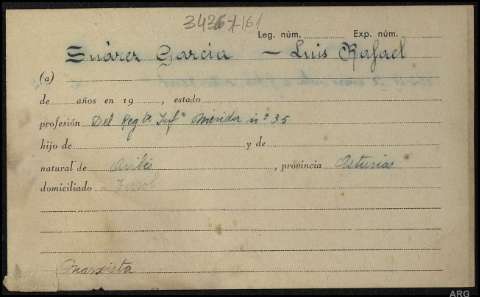 Leg. núm. Exp. núm.
Suárez García - Luis Rafael
(a)
de años en 19 , estado
profesión Del Regto Infª Mérida nº 35
hijo de y de
natural de Avilés , provincia Asturias
domiciliado
Marxista
ARG